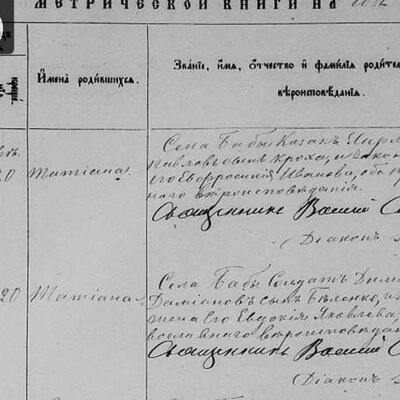 МЕТРИЧЕСКОЙ КНИГИ НА
Имена родившихся.
Званіе, имя, отчество и фамилія родител
вѣроисповѣданія.
20 Татіана.
Села Бабы Казак Хар
Павловъ сынъ Кроха, и закон
его Евфросинія Иванова, оба п
наго вѣроисповѣданія.
Священникъ Василій С
Діакон
20 Татіана.
Села Бабы Солдат Дим
Даміановъ сынъ Бѣленко, и з
жена его Евдокія Яковлева,
вославнаго вѣроисповѣдан
Священникъ Василій С
Діакон